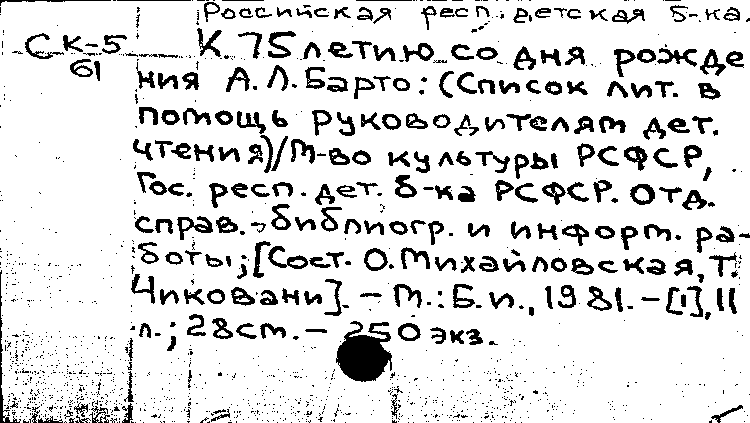 Российская респ. детская б-ка.
СК-5
61
К 75 летию со дня рожде
ния А.Л.Барто: (Список лит. в
помощь руководителям дет.
чтения)/М-во культуры РСФСР,
Гос. респ. дет. б-ка РСФСР. Отд.
справ.-библиогр. и информ. ра-
боты; [Сост. О.Михайловская, Т.
Чиковани]. - М.: Б.и., 1981. - [1], 11
л.; 28см. - 250 экз.